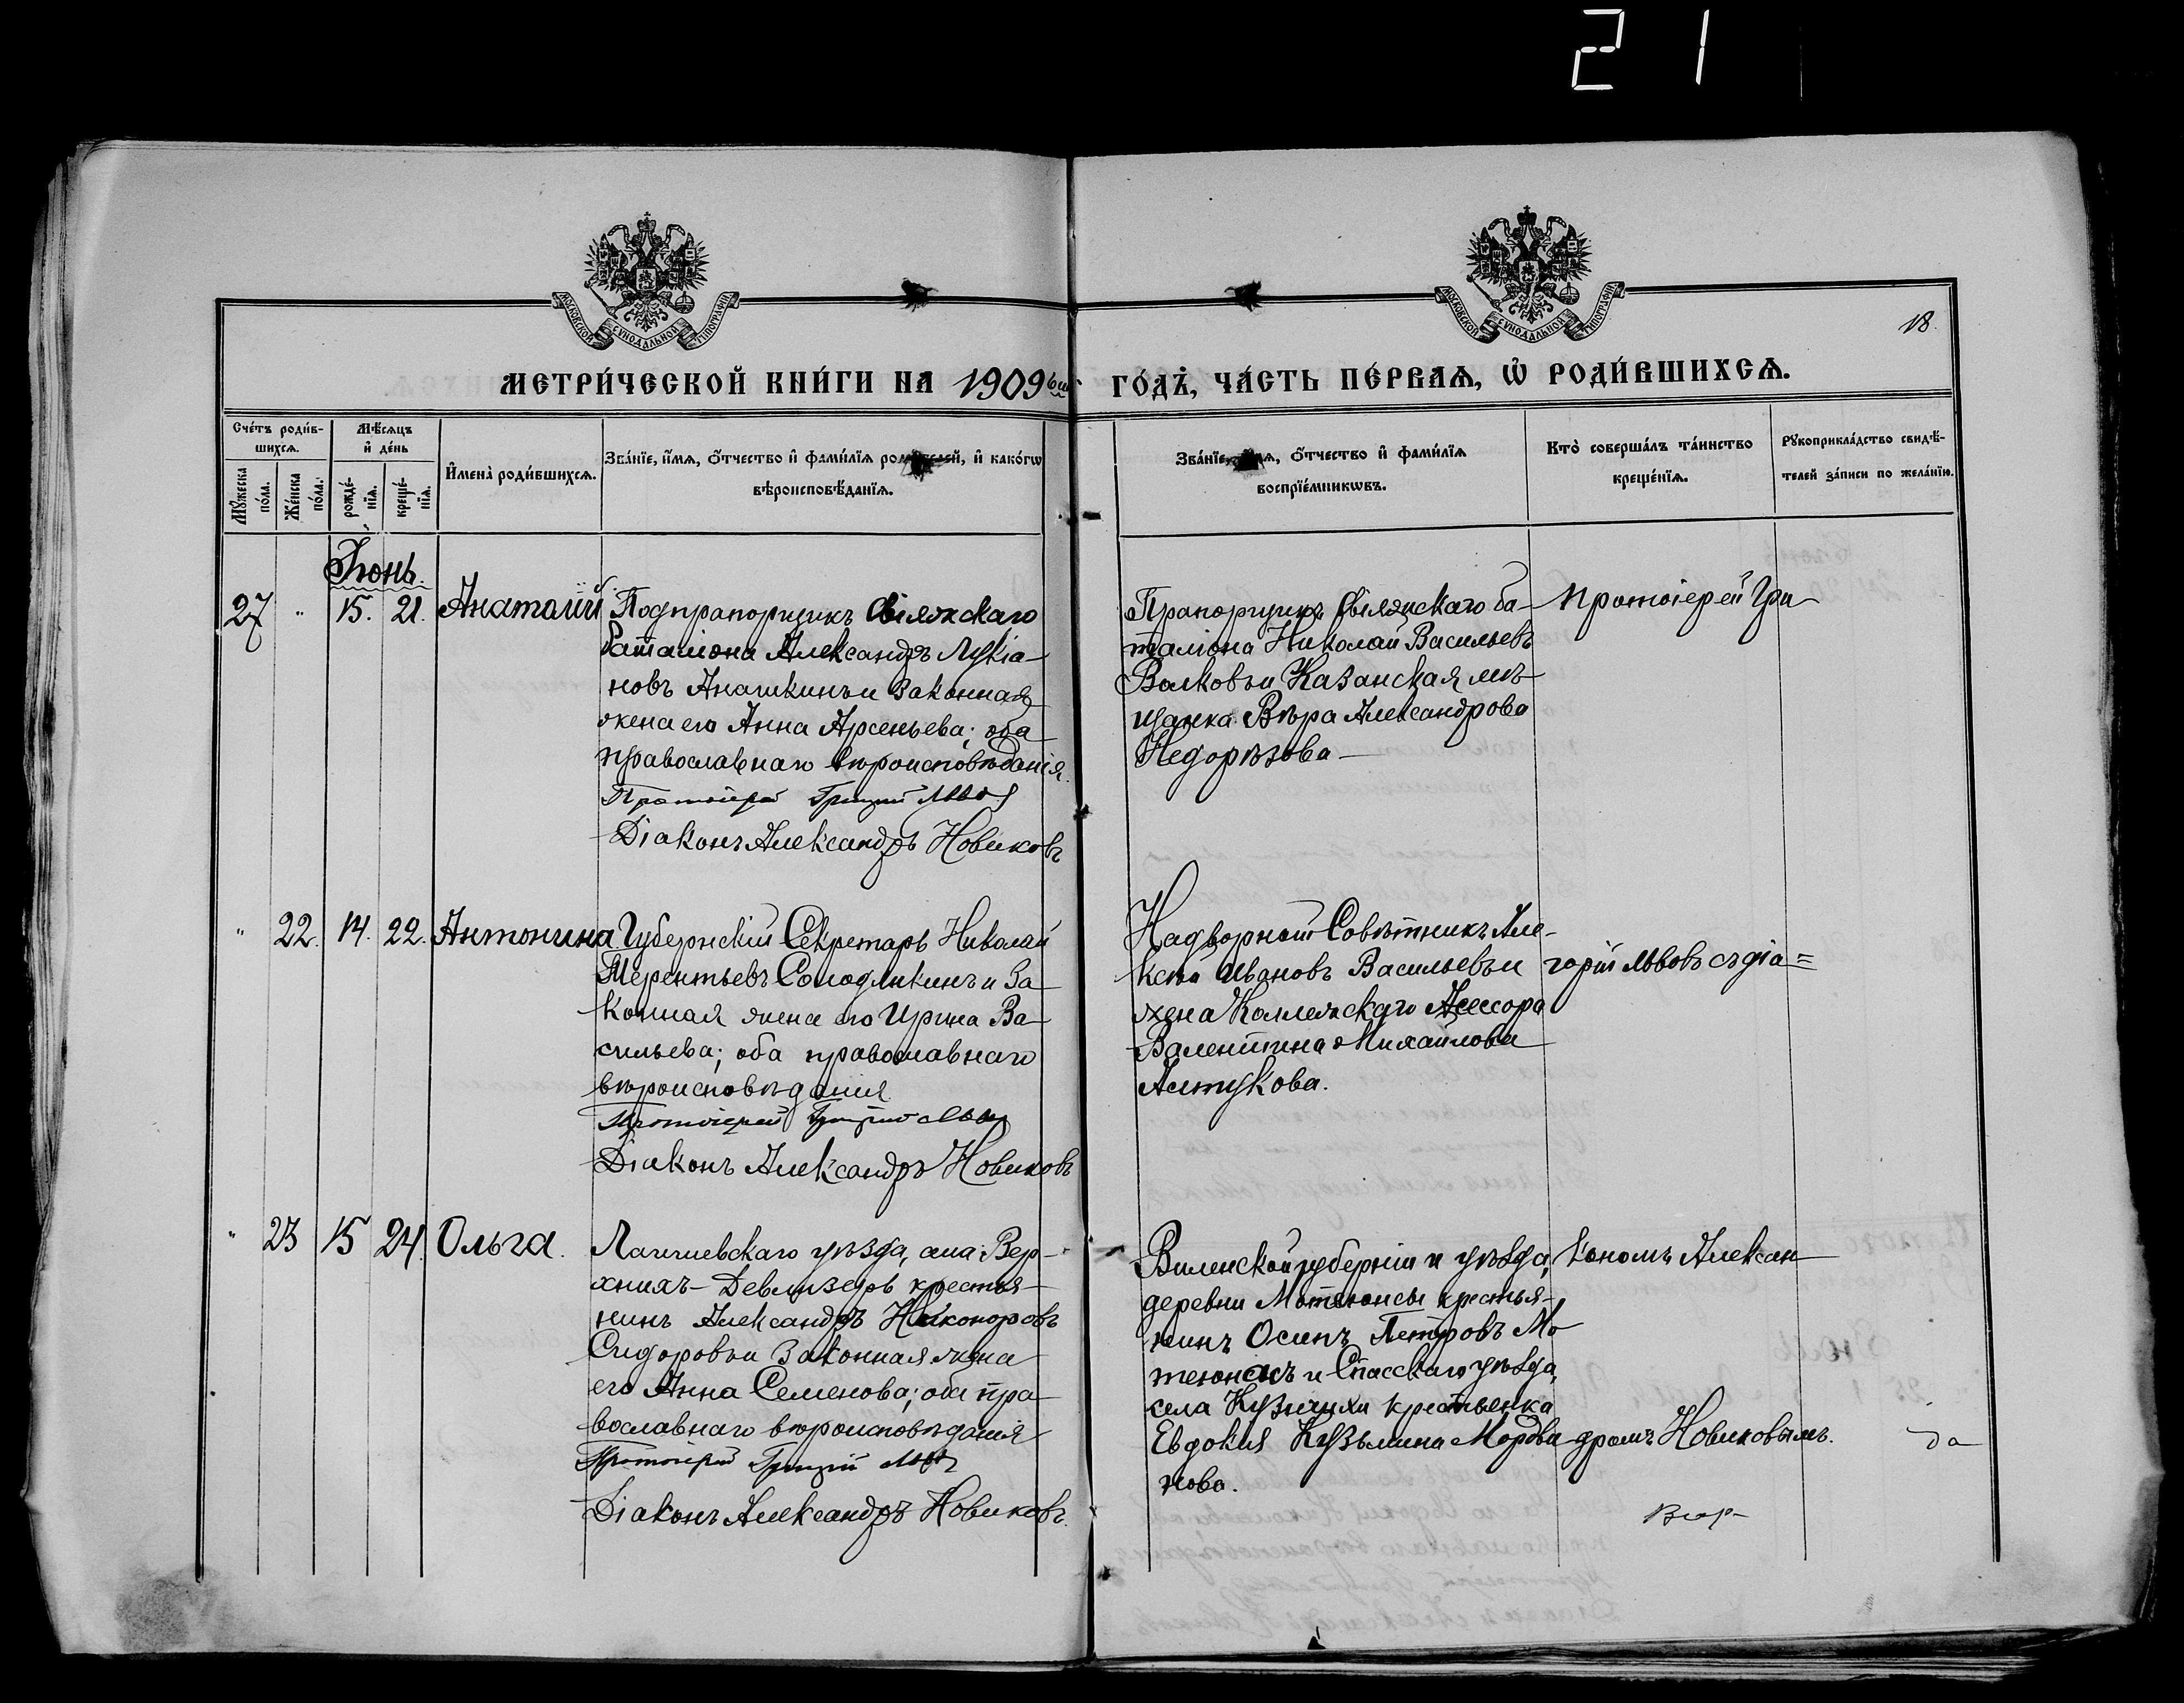 21
МОСКОВСКОЙ СУНОДАЛЬНОЙ ТИПОГРАФІИ
МОСКОВСКОЙ СУНОДАЛЬНОЙ ТИПОГРАФІИ
18.
МЕТРИ́ЧЕСКОЙ КНИ́ГИ НА 1909ый ГО́ДЪ, ЧА́СТЬ ПЕ́РВАѦ, Ѿ РОДИ́ВШИХСѦ.
Сче́тъ роди́в-
шихсѧ.
Мѣ́сѧцъ
и҆ де́нь
Мꙋ́жеска
по́ла.
Же́нска
по́ла.
рожде́-
нїѧ.
креще́-
нїѧ.
И҆мена̀ роди́вшихсѧ.
Зва́нїе, и҆́мѧ, ѻ҆́тчество и҆ фами́лїѧ роди́телей, и҆ како́гѡ
вѣроисповѣ́данїѧ.
Зва́нїе, и҆́мѧ, ѻ҆́тчество и҆ фами́лїѧ
воспрїе́мникѡвъ.
Кто̀ соверша́лъ та́инство
креще́нїѧ.
Рꙋкоприкла́дство свидѣ́-
телей за́писи по жела́нїю.
Іюнь.
27 " 15. 21. Анатолій
Подпрапорщикъ Свіяжскаго
баталіона Александръ Лукіа-
новъ Анашкинъ и законная
жена его Анна Арсеньева; оба
православнаго вѣроисповѣданія.
Протоіерей Григорій Львовъ
Діаконъ Александръ Новиковъ
Прапорщикъ Свіяжскаго ба-
таліона Николай Васильевъ
Волковъ и Казанская мѣ-
щанка Вѣра Александрова
Недорѣзова
Протоіерей Гри-
" 22. 14. 22. Антонина.
Губернскій Секретарь Николай
Терентьевъ Солодянкинъ и за-
конная жена его Ирина Ва-
сильева; оба православнаго
вѣроисповѣданія
Протоіерей Григорій Львовъ
Діаконъ Александръ Новиковъ
Надворный Совѣтникъ Але-
ксѣй Ивановъ Васильевъ и
жена Коллежскаго Асессора
Валентина Михайлова
Алтукова.
горій Львовъ съ діа=
" 23 15 24. Ольга.
Лаишевскаго уѣзда, села Вер-
хнихъ-Девлизерь крестья-
нинъ Александръ Никоноровъ
Сидоровъ и законная жена
его Анна Семенова; оба пра-
вославнаго вѣроисповѣданія
Протоіерей Григорій Львовъ
Діаконъ Александръ Новиковъ.
Виленской губерніи и уѣзда,
деревни Мотеюнсы крестья-
нинъ Осипъ Петровъ Мо
теюнсъ и Спасскаго уѣзда,
села Кузнечихи крестьянка
Евдокія Кузьмина Мордва
нова.
кономъ Алексан
дромъ Новиковымъ.